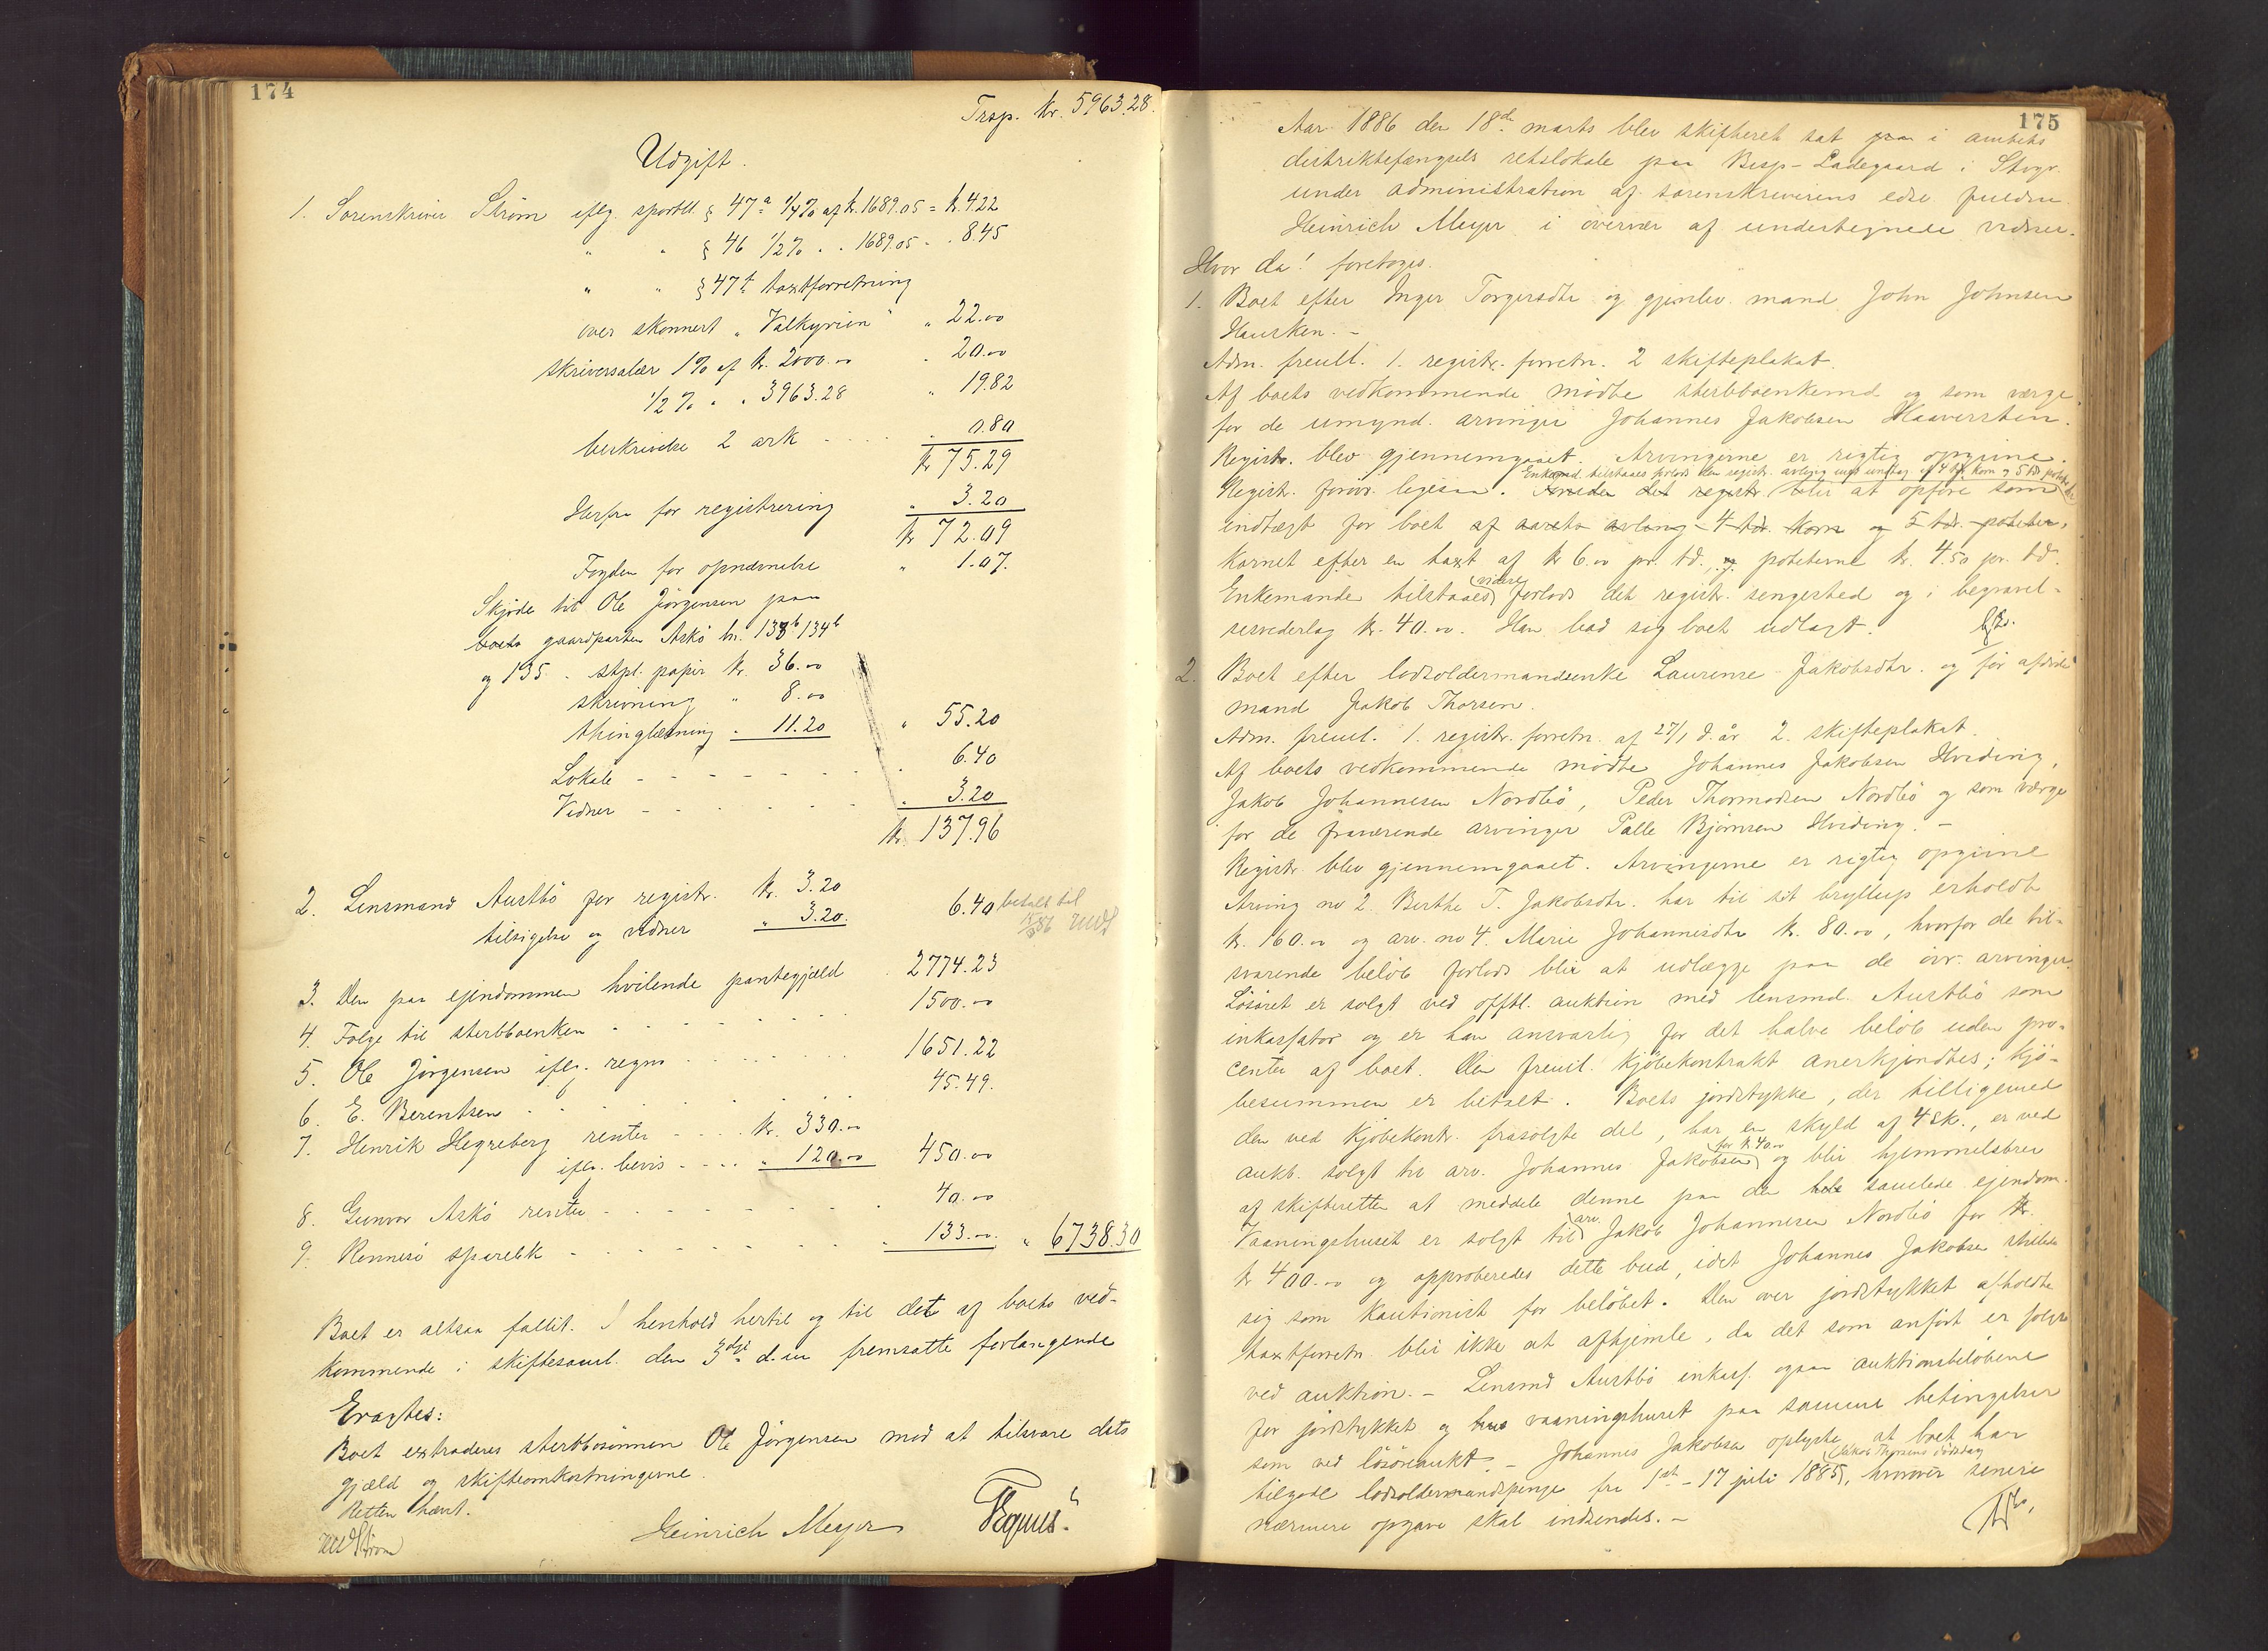 174
Trsp. kr. 5963.28.
Udgift.
1. Sorenskriver Strøm iflg. sportll. § 47a 1/4% af kr. 1689.05 = kr. 4.22
" " § 46 1/2% " " 1689.05 - " 8.45
" " § 47 taxtforretning
over skonnert "Valkyrien" " 22.00
skriversalær 1% af kr. 2000.00 " 20.00
1/2% " " 3963.28 " 19.82
beskrivelse 2 ark " 0.80
kr 75.29
Herfra for registrering " 3.20
kr 72.09
Fogden for opnævnelse " 1.07.
Skjøde til Ole Jørgensen paa
boets gaardparten Askø ln. 133b 134b
og 135. stpl. papir kr. 36.00
skrivning " 8.00
thinglæsning " 11.20 " 55.20
Lokale " 6.40
Vidner " 3.20
kr. 137.96
2. Lensmand Austbø for registr. kr. 3.20
tilsigelse og vidner " 3.20. 6.40 betalt til
3. Den paa ejendommen hvilende pantegjæld 2774.23
4. Følge til sterbboenken 1500.00
5. Ole Jørgensen iflg. regn 1651.22
6. E. Berentsen 45.49.
7. Henrik Hegreberg renter kr. 330.00
iflg. bevis " 120.00 450.00
8. Gunvor Askø renter 40.00
9. Rennesø sparebk " 133.00. " 6738.30
Boet er altsaa fallit. I henhold hertil og til det af boets ved-
kommende i skiftesaml. den 3die d.m fremsatte forlangende
Eragtes:
Boet extraderes sterbbosønnen Ole Jørgensen mod at tilsvare dets
gjæld og skifteomkostningerne.
Retten hævt.
Strøm Heinrich Meyer
175
Aar 1886 den 18de marts blev skifteret sat paa i amtets
distriktsfængsels retslokale paa Bisp-Ladegaard i Stvgr.
under administration af sorenskriverens edsv. fuldm
Heinrich Meyer i overvær af undertegnede vidner.
Hvor da! foretoges.
1. Boet efter Inger Torgersdtr og gjenlev. mand John Johnsen
Hausken. -
Adm. freml. 1. registr. forretn. 2 skifteplakat.
Af boets vedkommende mødte sterbboenkemd og som værge
for de umynd. arvinger Johannes Jakobsen Haaversten.
Registr. blev gjennemgaaet. Arvingerne er rigtig opgivne.
Enkemd. tilstaaes forlods den registr. avling med undtag. af 4 td. korn og 5 td. poteter
Registr. forøvr. ligesaa. Foruden det registr. blir at opføre som
indtægt for boet af aarets avling 4 td. korn og 5 td. poteter,
kornet efter en taxt af kr 6.00 pr. td., og poteterne kr. 4.50 pr. td.
Enkemanden tilstaaes (videre) forlods det registr. sengested og i begravel-
sesvederlag kr. 40.00. Han bad sig boet udlagt.
2. Boet efter lodsoldermandsenke Laurense Jakobsdtr. og før afdøde
mand Jakob Thorsen.
Adm. freml. 1. registr. forretn. af 27/1 d. år 2. skifteplakat.
Af boets vedkommende mødte Johannes Jakobsen Hviding,
Jakob Johannesen Nordbø, Peder Thormodsen Nordbø og som værge
for de fraværende arvinger Palle Bjørnsen Hviding. -
Registr. blev gjennemgaaet. Arvingerne er rigtig opgivne
Arving no 2. Berthe T. Jakobsdtr. har til sit bryllup erholdt
kr. 160.00 og arv. no 4. Marie Johannesdtr kr. 80.00, hvorfor de til-
svarende beløb forlods blir at udlægge paa de øvr. arvinger.
Løsøret er solgt ved offtl. auktion med lensmd. Austbø som
inkassator og er han ansvarlig for det halve beløb uden pro-
center af boet. Den freml. kjøbekontrakt anerkjendtes; kjø-
besummen er betalt. Boets jordstykke, der tilligemed
den ved kjøbekontr. frasolgte del, har en skyld af 4 sk., er ved
aukt. solgt til arv. Johannes Jakobsen (for kr. 40.00) og blir hjemmelsbrev
af skifteretten at meddele denne paa den hele samlede ejendom.
Vaaningshuset er solgt til (arv.) Jakob Johannesen Nordbø for kr.
kr 400.00 og approberedes dette bud, idet Johannes Jakobsen stillede
sig som kautionist for beløbet. Den over jordstykket afholdte
taxtforretn. blir ikke at afhjemle, da det som anført er solgt
ved auktion. - Lensmd Austbø inkass. ogsaa auktionsbeløbene
for jordstykket og hus vaaningshuset paa samme betingelser
som ved løsøreaukt. - Johannes Jakobsen oplyste at boet har
tilgode lodsoldermandspenge fra 1ste - 17 juli 1885 (Jakob Thorsens dødsdag), hvorover senere
nærmere opgave skal indsendes. -